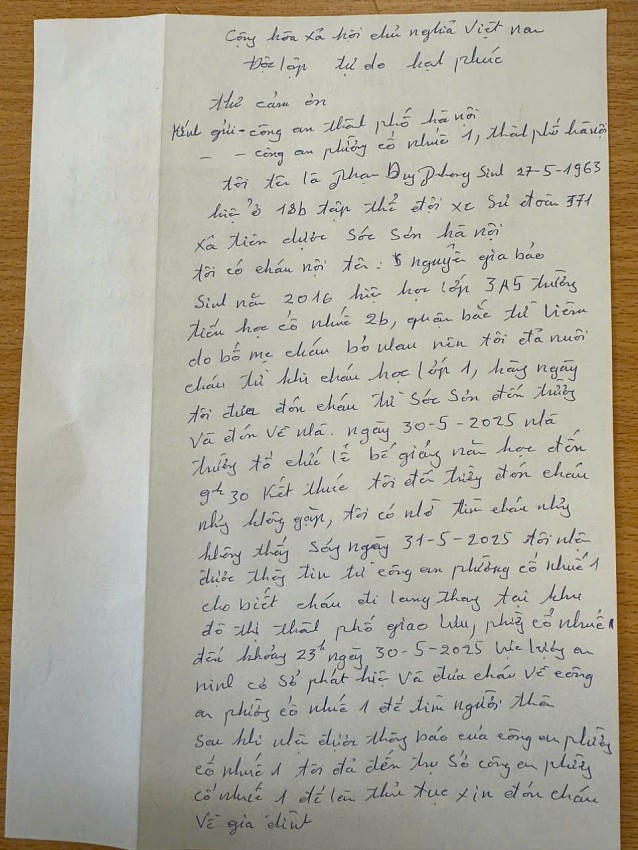 Cộng hòa xã hội chủ nghĩa Việt nam
Độc lập tự do hạnh phúc
thư cảm ơn
Kính gửi - công an thành phố hà nội
- - công an phường cổ nhuế 1, thành phố hà nội
tôi tên là phạm Duy phong Sinh 27-5-1963
hiện ở 18b tập thể đội xe Sư đoàn 371
xã tiên dược Sóc Sơn hà nội
tôi có cháu nội tên: nguyễn gia bảo
Sinh năm 2016 hiện học lớp 3A5 trường
tiểu học cổ nhuế 2b, quận bắc từ liêm
do bố mẹ cháu bỏ nhau nên tôi đã nuôi
cháu từ khi cháu học lớp 1, hàng ngày
tôi đưa đón cháu từ Sóc Sơn đến trường
và đón về nhà. ngày 30-5-2025 nhà
trường tổ chức lễ bế giảng năm học đến
9h 30 Kết thúc tôi đến trường đón cháu
nhưng không gặp, tôi có nhờ tìm cháu nhưng
không thấy Sáng ngày 31-5-2025 tôi nhận
được thông tin từ công an phường cổ nhuế 1
cho biết cháu đi lang thang tại khu
đô thị thành phố giao lưu, phường cổ nhuế 1
đến khoảng 23h ngày 30-5-2025 lực lượng an
ninh cơ Sở phát hiện và đưa cháu về công
an phường cổ nhuế 1 để tìm người thân
Sau khi nhận được thông báo của công an phường
cổ nhuế 1 tôi đã đến trụ Sở công an phường
cổ nhuế 1 để làm thủ tục xin đón cháu
về gia đình